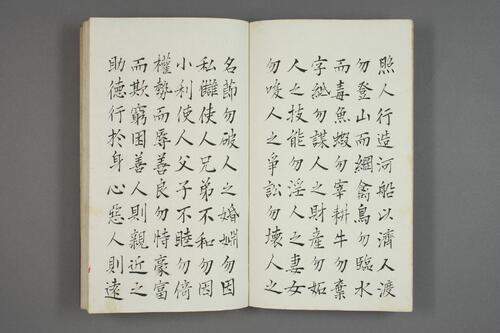 照人行造河船以濟人渡
勿登山而網禽鳥勿臨水
而毒魚蝦勿宰耕牛勿棄
字紙勿謀人之財產勿妬
人之技能勿淫人之妻女
勿唆人之爭訟勿壞人之
名節勿破人之婚婣勿因
私讎使人兄弟不和勿因
小利使人父子不睦勿倚
權勢而辱善良勿恃豪富
而欺窮困善人則親近之
助德行於身心惡人則遠